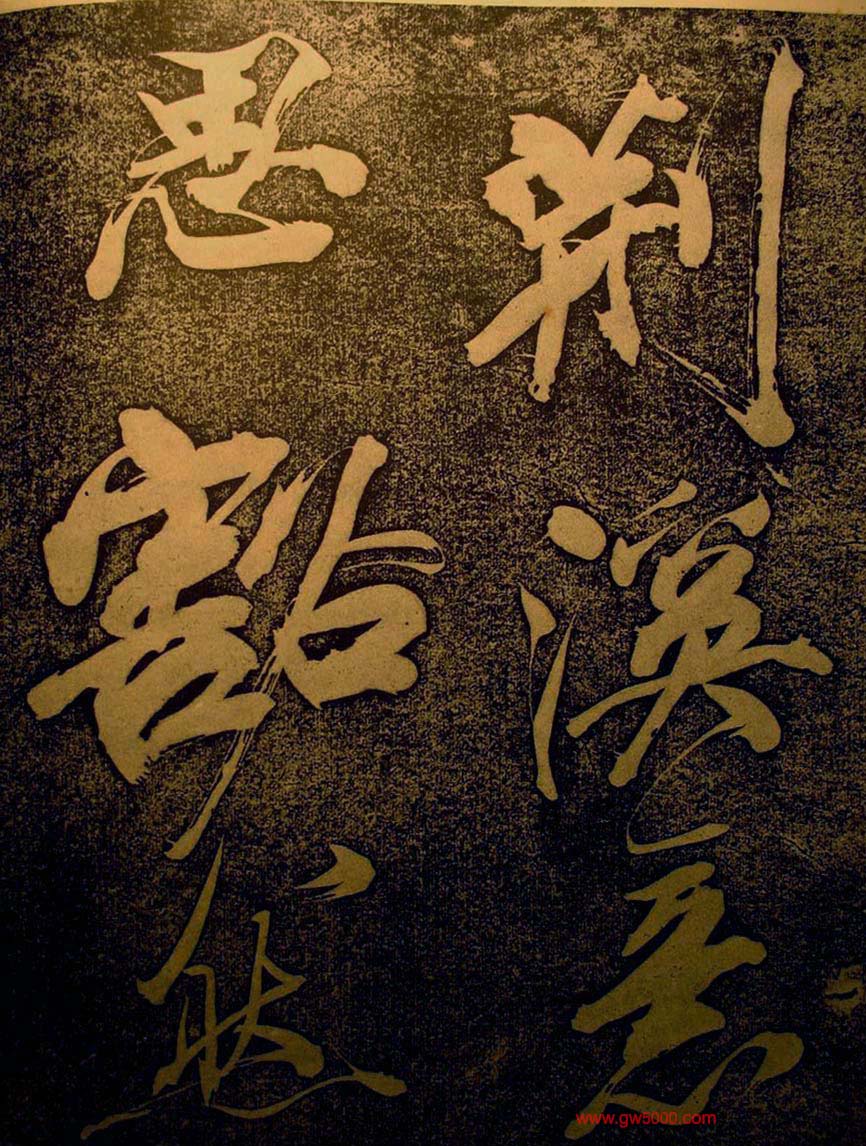 荆溪意
思豁然
www.gw5000.com